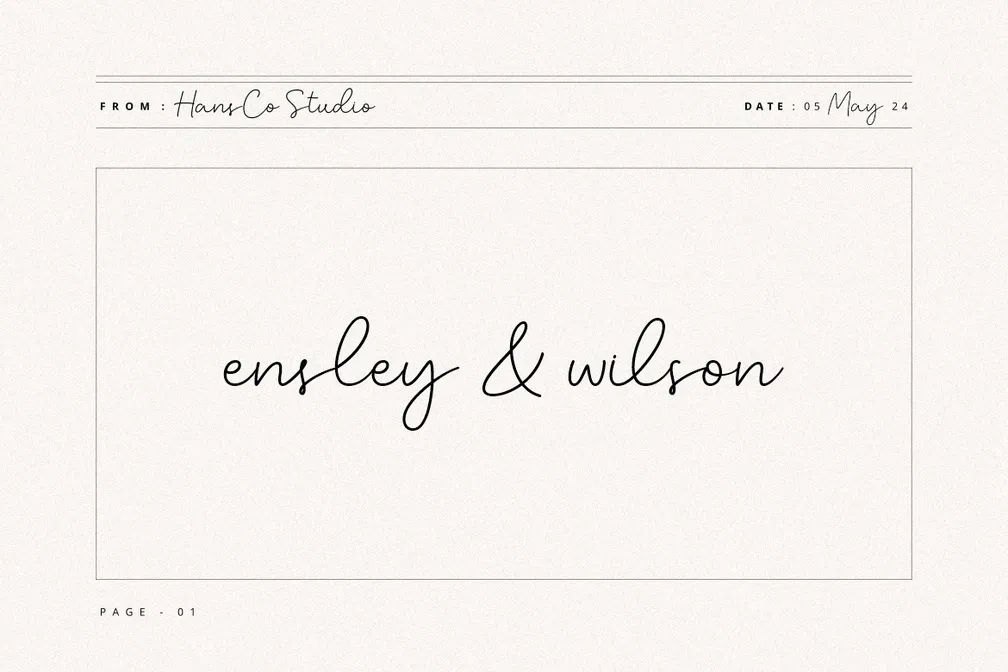 FROM : HansCo Studio
DATE : 05 May 24
ensley & wilson
PAGE - 01